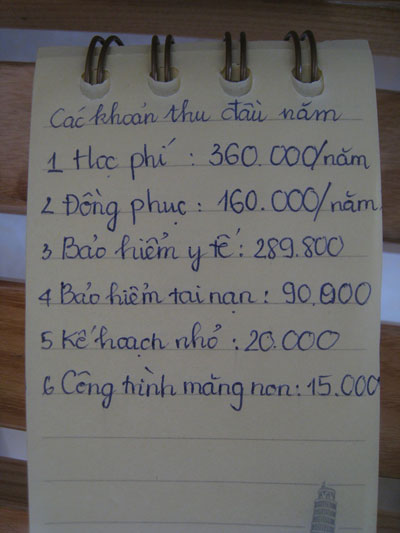 Các khoản thu đầu năm
1 Học phí : 360.000/năm
2 Đồng phục : 160.000/năm
3 Bảo hiểm y tế : 289.800
4 Bảo hiểm tai nạn : 90.000
5 Kế hoạch nhỏ : 20.000
6 Công trình măng non : 15.000